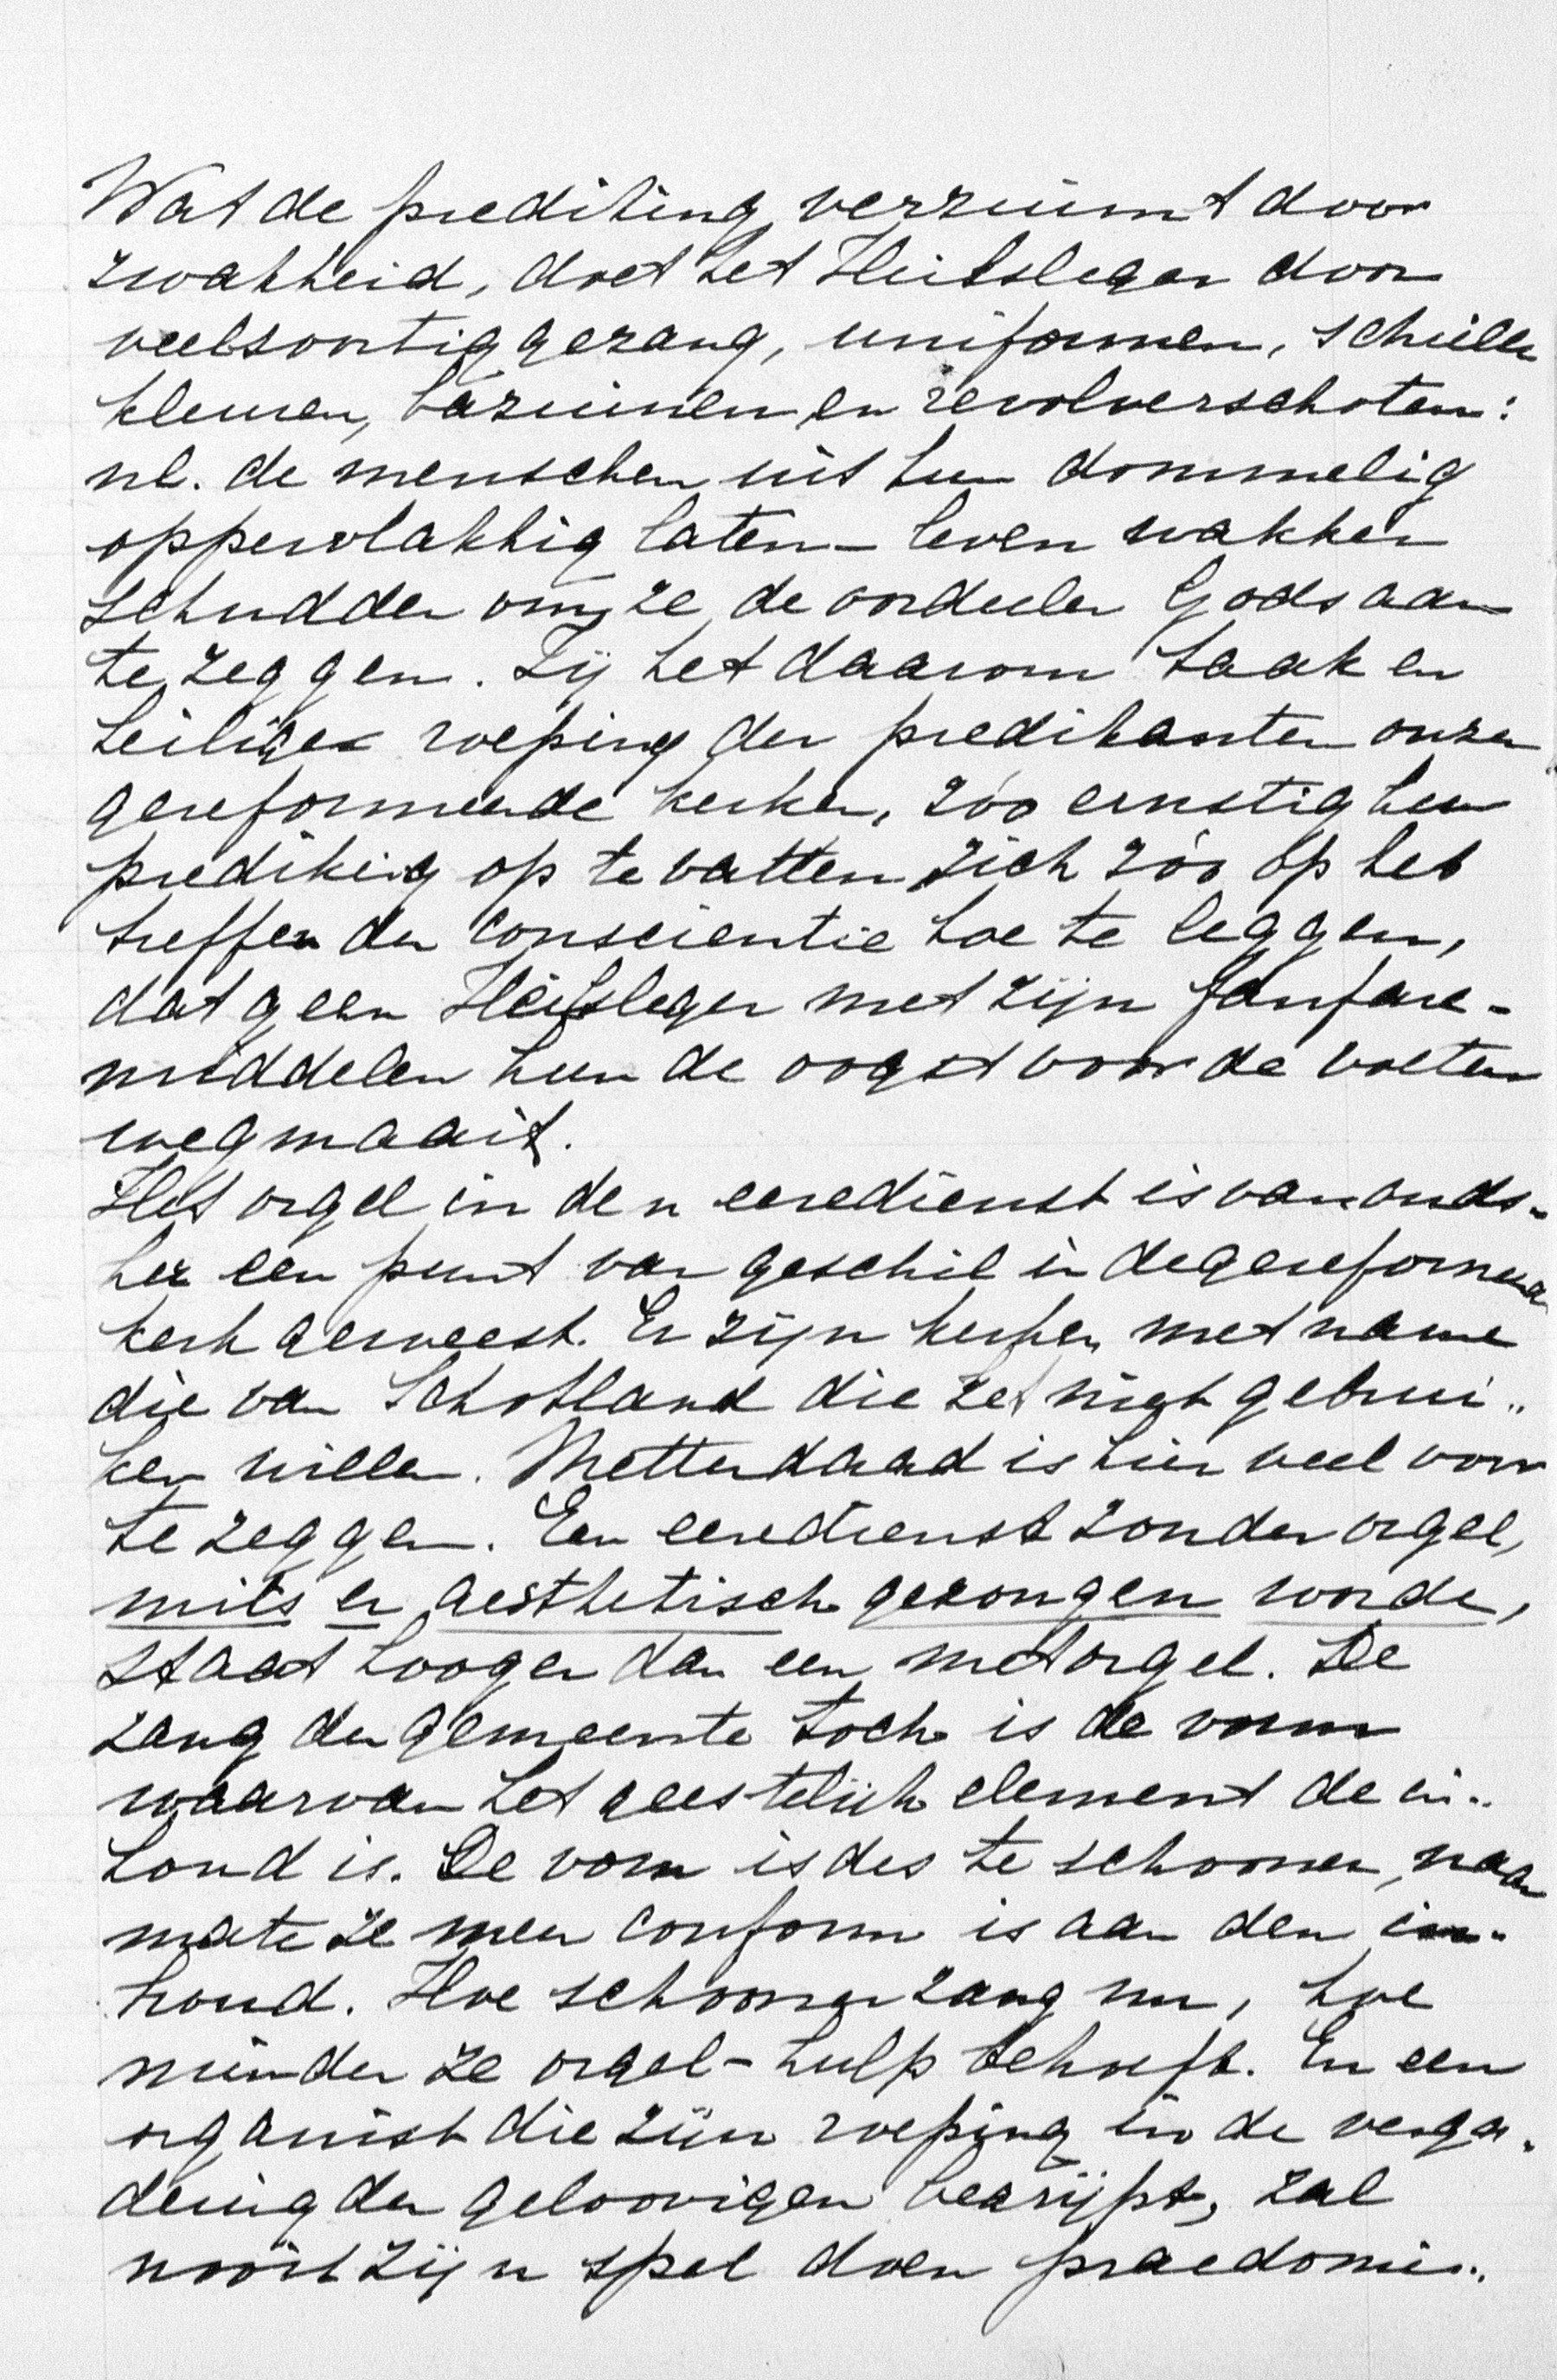 Wat de prediking verzuimt door
zwakheid, doet het Heilsleger door
veelsoortig gezang, uniformen, schelle
kleuren, bazuinen en revolverschoten:
nl. de menschen uit hun dommelig
oppervlakkig laten-leven wakker
schudden om ze de oordeelen Gods aan
te zeggen. Zij het daarom taak en
heilige roeping der predikanten onzer
gereformeerde kerken, zóó ernstig hun
prediking op te vatten, zich zóó op het
treffen der conscientie toe te leggen,
dat geen Heilsleger met zijn fanfare-
middelen hun de oogst voor de voeten
wegmaait.
Het orgel in den eeredienst is van ouds-
her een punt van geschil in de gereformeerde
kerk geweest. Er zijn kerken, met name
die van Schotland die het niet gebrui-
ken willen. Metterdaad is hier veel voor
te zeggen. Een eeredienst zonder orgel,
mits er aesthetisch gezongen worde,
staat hooger dan een met orgel. De
zang der gemeente toch is de vorm
waarvan het geestelijk element de in-
houd is. De vorm is des te schooner, naar
mate ze meer conform is aan den in-
houd. Hoe schooner zang nu, hoe
minder ze orgel-hulp behoeft. En een
organist die zijn roeping in de verga-
dering der geloovigen begrijpt, zal
nooit zijn spel doen praedomi-